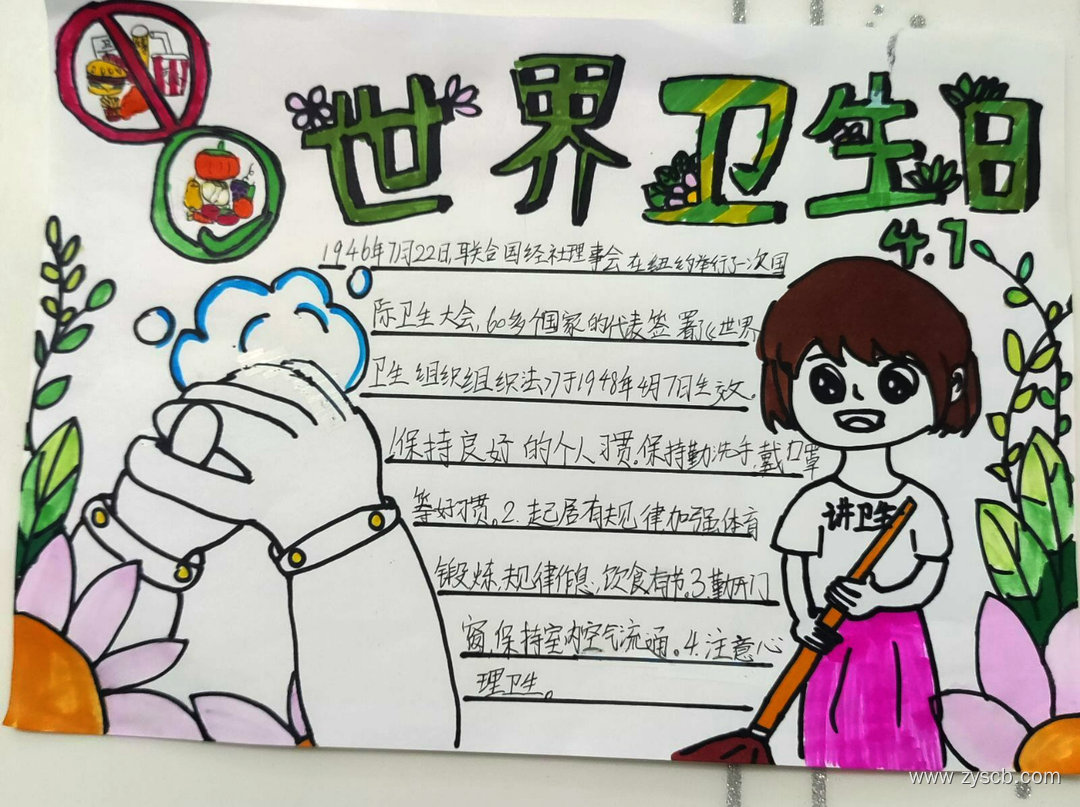 世界卫生日
4.7
1946年7月22日,联合国经社理事会在纽约举行了一次国
际卫生大会,60多个国家的代表签署了《世界
卫生组织组织法》于1948年4月7日生效。
1.保持良好的个人习惯。保持勤洗手,戴口罩
等好习惯。2.起居有规律加强体育
锻炼,规律作息,饮食有节。3.勤开门
窗,保持室内空气流通。4.注意心
理卫生。
讲卫生
www.zyscb.com